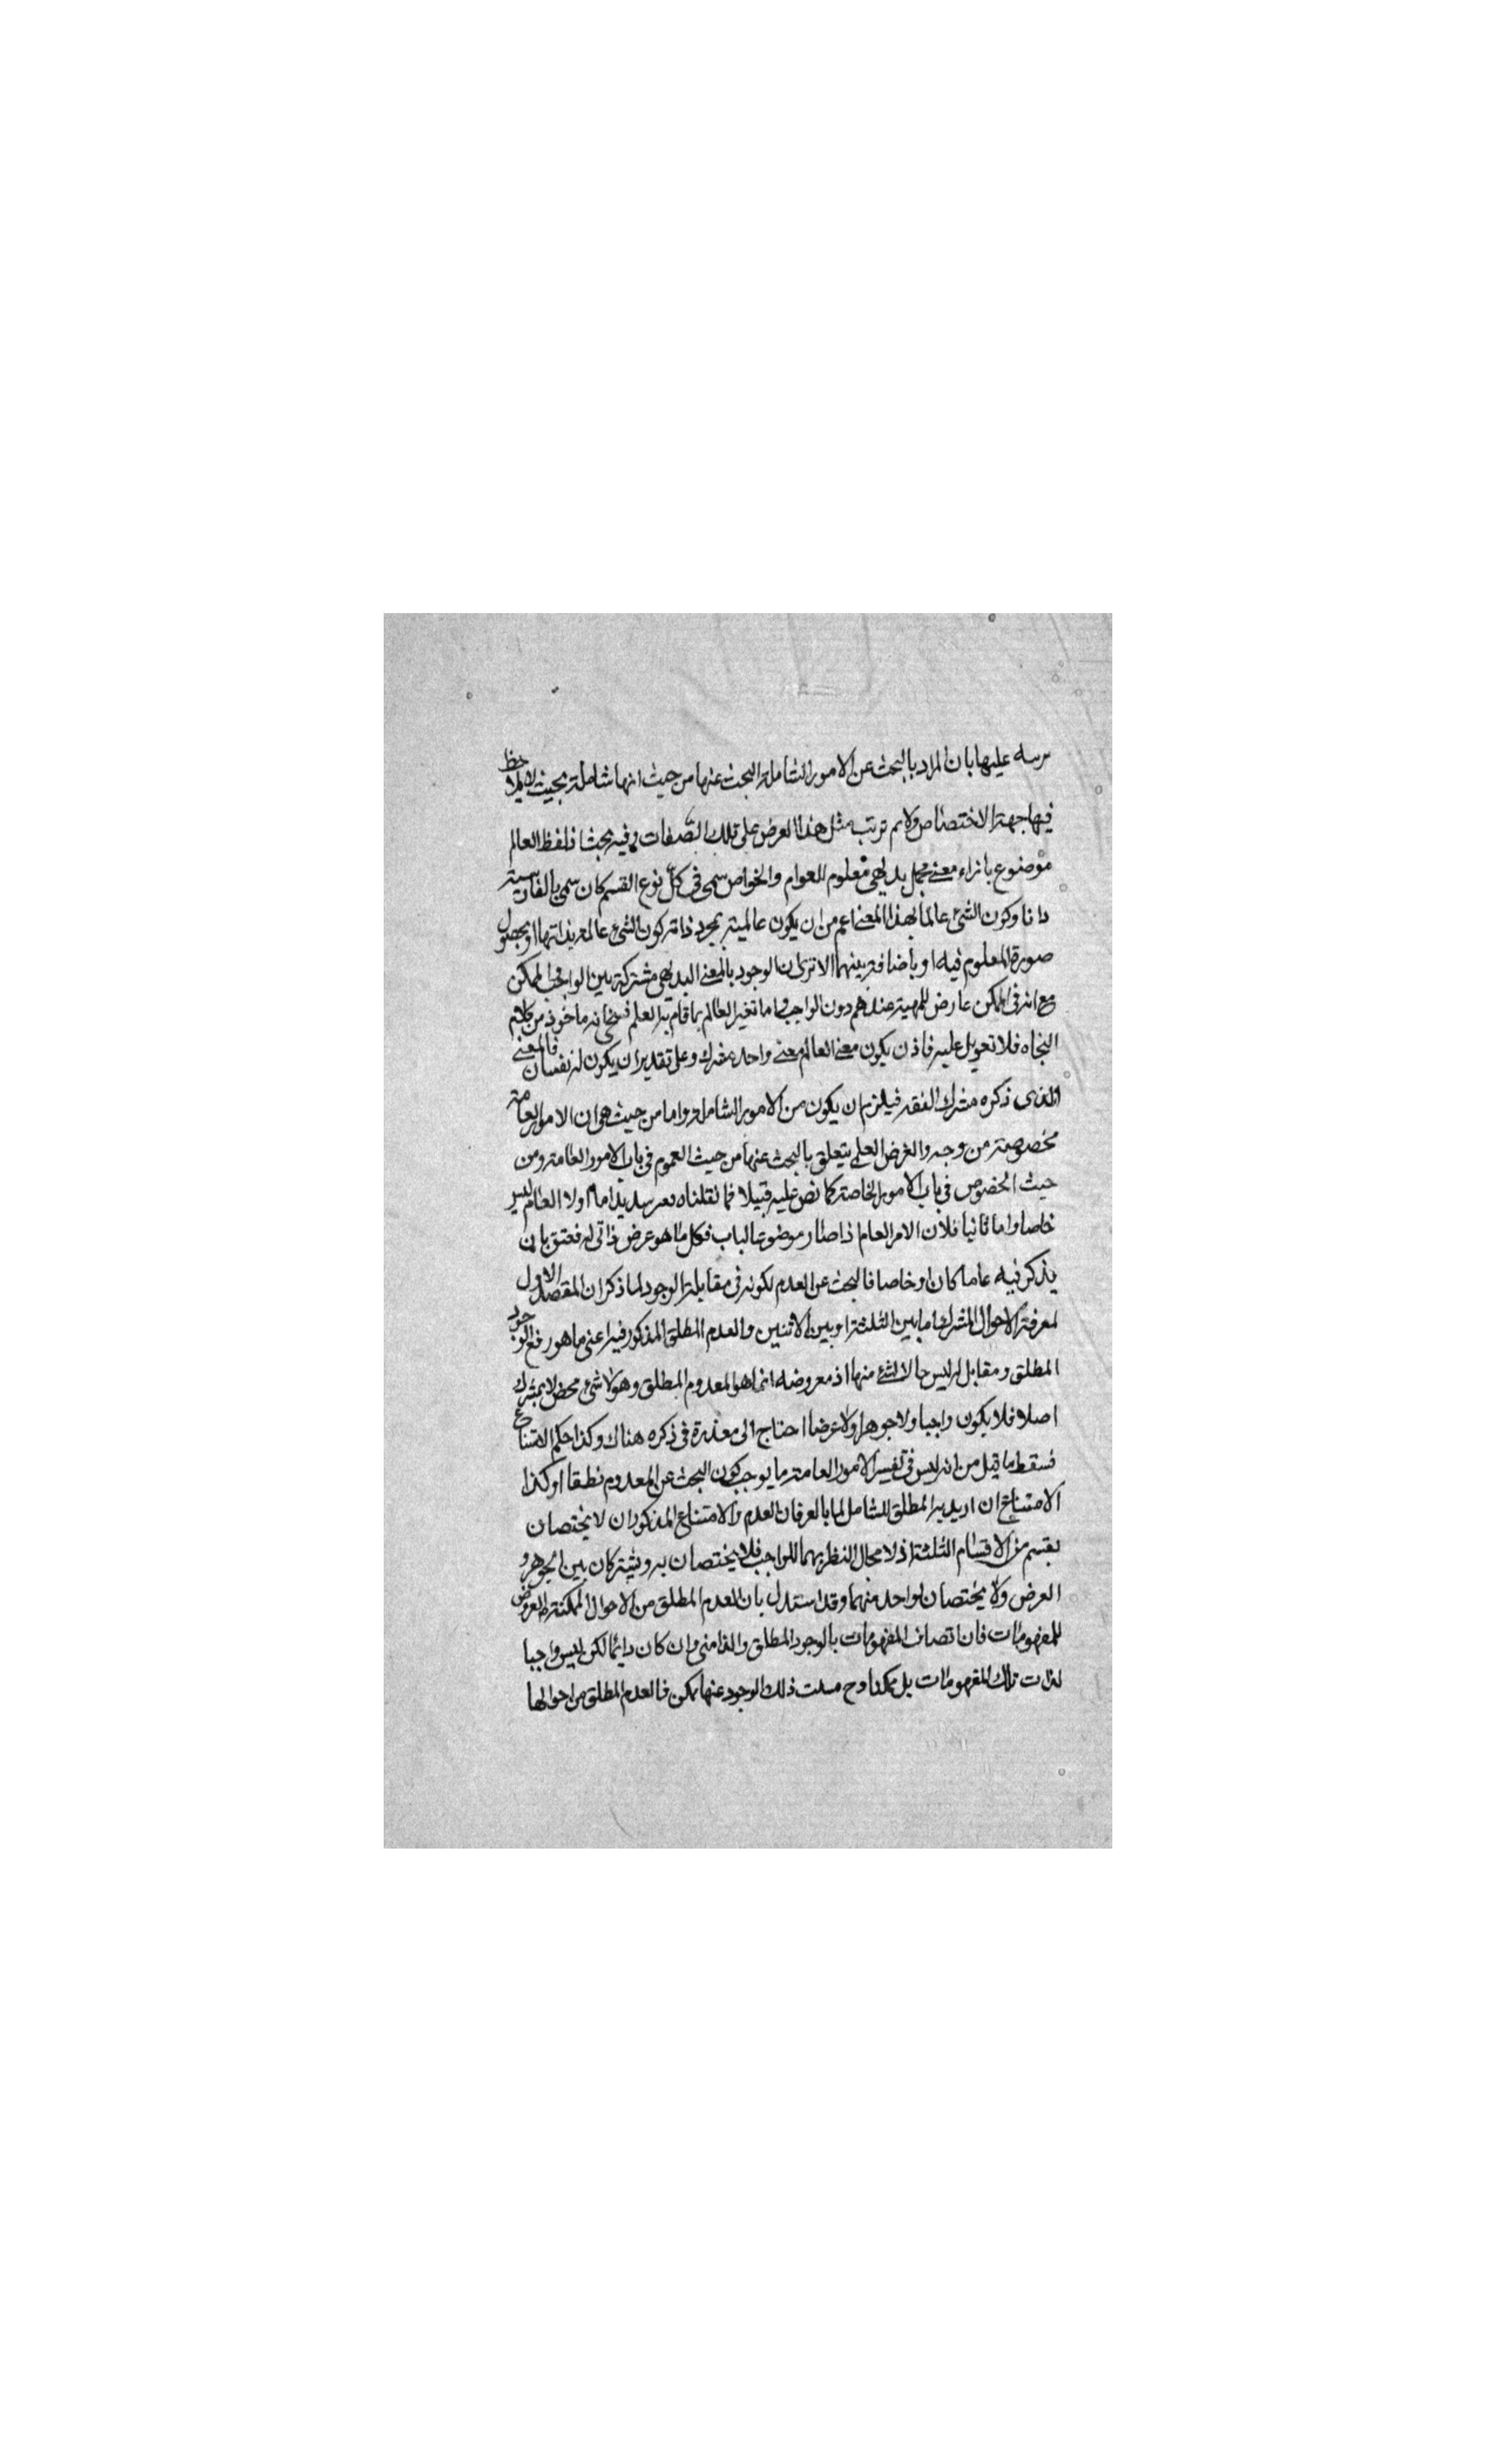 عليها بان المراد بالبحث عن الامور الشاملة البحث عنها من حيث انها شاملة بحيث لا يلاحظ
فيها جهة الاختصاص ولا ثم ترتب مثل هذا الغرض على تلك الصفات وفيه بحث اذ لفظ العالم
موضوع بازاء معنے مجمل بديهى معلوم للعوام والخواص سمى فى كل نوع القسم كان سمى بالفارسية
دانا وكون الشئ عالما بهذا المعنے اعم من ان يكون عالمية بمجرد ذاته كون الشئ عالمه بذاتها او بحصول
صورة المعلوم فيه او باضافة بينهما الا ترى ان الوجود بالمعنے البديهى مشتركة بين الواجب والممكن
مع انه فى الممكن عارض للمهية عندهم دون الواجب واما تفسير العالم بما قام به العلم فى انه ماخوذ من كلام
النجاه فلا تعويل عليه فاذن يكون معنے العالم معنے واحد مشترك وعلى تقدير ان يكون له نفسان فالمعنے
الذى ذكره مشترك فيلزم ان يكون من الامور الشاملة واما من حيث هى ان الامور العامة
مخصوصة من وجه والغرض العلمى يتعلق بالبحث عنها من حيث العموم فى باب الامور العامة ومن
حيث الخصوص فى باب الامور الخاصة كما نص عليه قبيلا فما نقلناه اما اولا العام ليس
خاصا واما ثانيا فلان الامر العام اذا صار موضوعا لباب فكل ما هو عرض ذاتى له بان
يذكر فيه عاما كان او خاصا فالبحث عن العدم لكونه فى مقابلة الوجود لما ذكر ان المقصد الاول
لمعرفة الاحوال المشتركة اما بين الثلثة او بين الاثنين والعدم المطلق المذكور فيه اعنى ما هو رفع الوجود
المطلق ومقابل له ليس حالا لشئ منها اذ معروضه انما هو المعدوم المطلق وهو لا شئ محض لا يشترك
اصلا فلا يكون واجبا ولا جوهرا ولا عرضا احتاج الى معذرة فى ذكره هناك وكذا حكم الامتناع
فسقط ما قيل من انه ليس فى تفسير الامور العامة ما يوجب كون البحث عن المعدوم تطفلا وكذا
الامتناع ان اريد به المطلق الشامل لما بالغير فان العدم والامتناع المذكوران لا يختصان
بقسم من الاقسام الثلثة اذ لا مجال النظر بهما للواجب فلا يختصان به ويشتركان بين الجوهر و
العرض ولا يختصان لواحد منهما وقد استدل بان العدم المطلق من الاحوال الممكنة العروض
للمفهومات فان اتصاف المفهومات بالوجود المطلق وان كان دائما لكن ليس واجبا
لذات تلك المفهومات بل ممكنا وح سلب ذلك الوجود عنها ممكن فالعدم المطلق من احوالها